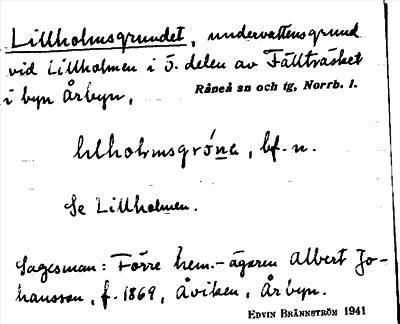 Lillholmsgrundet, undervattensgrund
vid Lillholmen i ö. delen av Fällträsket
i byn Årbyn,
Råneå sn och tg, Norrb. l.
lılholmsgrónə, bf. n.
Se Lillholmen.
Sagesman: Förre hem.-ägaren Albert Jo-
hansson, f. 1869, Åviken, Årbyn.
EDVIN BRÄNNSTRÖM 1941